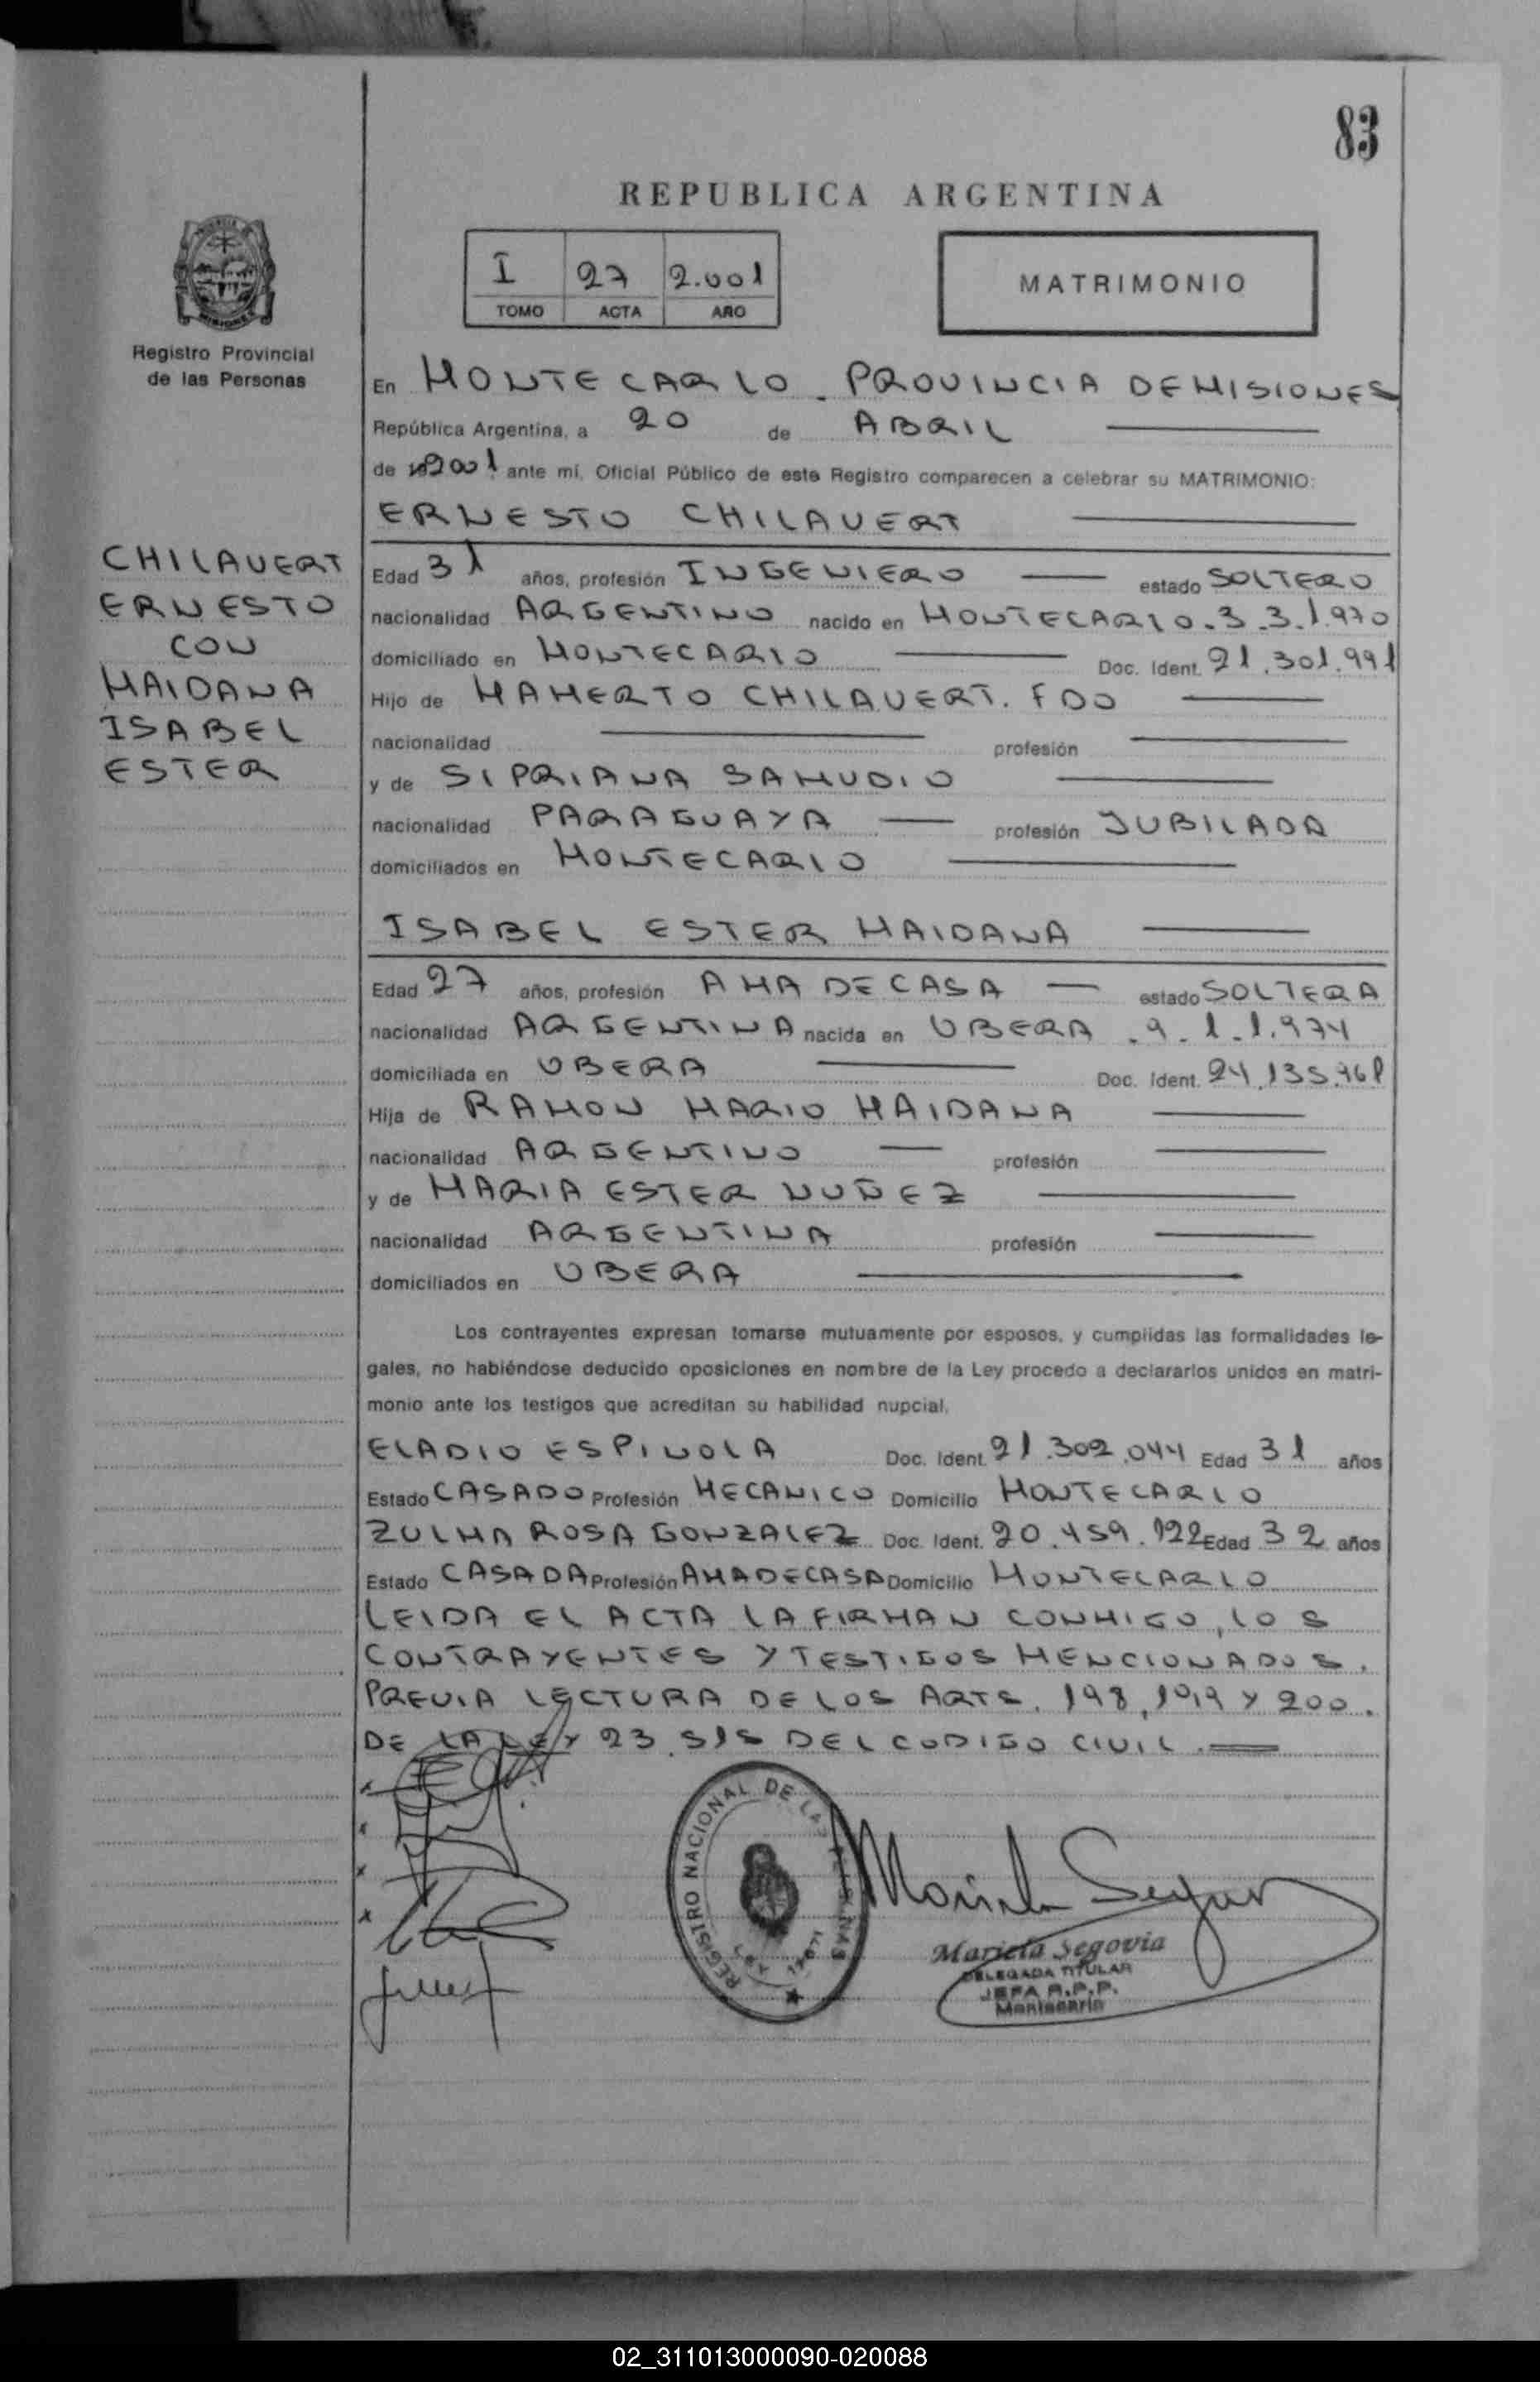 83
REPUBLICA ARGENTINA
I 27 2.001
TOMO ACTA AÑO
MATRIMONIO
Registro Provincial
de las Personas
En MONTECARLO. PROVINCIA DE MISIONES
República Argentina, a 20 de ABRIL
de 2001 ante mí, Oficial Público de este Registro comparecen a celebrar su MATRIMONIO:
ERNESTO CHILAVERT
CHILAVERT
ERNESTO
CON
MAIDANA
ISABEL
ESTER
Edad 31 años, profesión INGENIERO estado SOLTERO
nacionalidad ARGENTINO nacido en MONTECARLO. 3.3.1.970
domiciliado en MONTECARLO Doc. Ident. 21.301.991
Hijo de MAMERTO CHILAVERT. FDO
nacionalidad profesión
y de SIPRIANA SAMUDIO
nacionalidad PARAGUAYA profesión JUBILADA
domiciliados en MONTECARLO
ISABEL ESTER MAIDANA
Edad 27 años, profesión AMA DE CASA estado SOLTERA
nacionalidad ARGENTINA nacida en OBERA. 9.1.1.974
domiciliada en OBERA Doc. Ident. 24.135.
Hija de RAMON MARIO MAIDANA
nacionalidad ARGENTINO profesión
y de MARIA ESTER NUÑEZ
nacionalidad ARGENTINA profesión
domiciliados en OBERA
Los contrayentes expresan tomarse mutuamente por esposos, y cumplidas las formalidades le-
gales, no habiéndose deducido oposiciones en nombre de la Ley procedo a declararlos unidos en matri-
monio ante los testigos que acreditan su habilidad nupcial.
ELADIO ESPINOLA Doc. Ident. 21.302.044 Edad 31 años
Estado CASADO Profesión MECANICO Domicilio MONTECARLO
ZULMA ROSA GONZALEZ Doc. Ident. 20.459.122 Edad 32 años
Estado CASADA Profesión AMA DE CASA Domicilio MONTECARLO
LEIDA EL ACTA LA FIRMAN CONMIGO, LOS
CONTRAYENTES Y TESTIGOS MENCIONADOS.
PREVIA LECTURA DE LOS ARTS. 198, 199 Y 200.
DE LA LEY 23.515 DEL CODIGO CIVIL.
REGISTRO NACIONAL DE LAS PERSONAS
Mariela Segovia
DELEGADA TITULAR
JEFA R.P.P.
Montecarlo
02_311013000090-020088